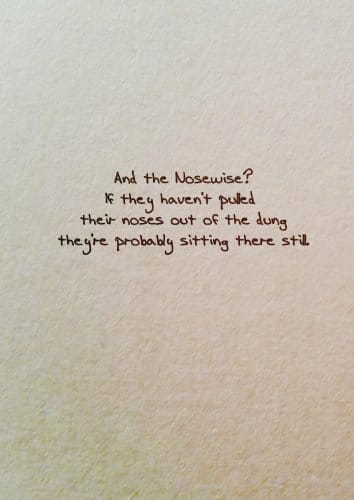 And the Nosewise?
If they haven't pulled
their noses out of the dung
they're probably sitting there still.